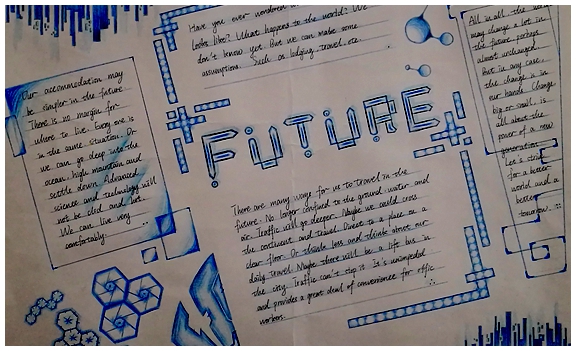 Have you ever wondered
Looks like? What happens to the world? We
don't know yet. But we can make some
assumption. Such as lodging, travel, etc.
FUTURE
Our accommodation may
be simpler in the future
There is no margin for
where to live. Every one is
in the same situation. Or
we can go deep into the
ocean, high mountain and
settle down. Advanced
science and technology will
not be cold and hot.
We can live very
comfortably.
There are many ways for us to travel in the
future. No longer confined to the ground, water and
air. Traffic will go deeper. Maybe we could cross
the continent and travel. Direct to a place on a
clear floor. Or think less and think about our
daily travel. Maybe there will be a life bus in
the city. Traffic can't stop it. It's unimpeded
and provides a great deal of convenience for office
workers.
All in all, the
may change a lot in
the future, perhaps
almost unchanged.
But in any case,
the change is in
our hands. Change,
big or small, is
all about the
power of a new
generation.
Let's strive
for a better
world and a
better
tomorrow.